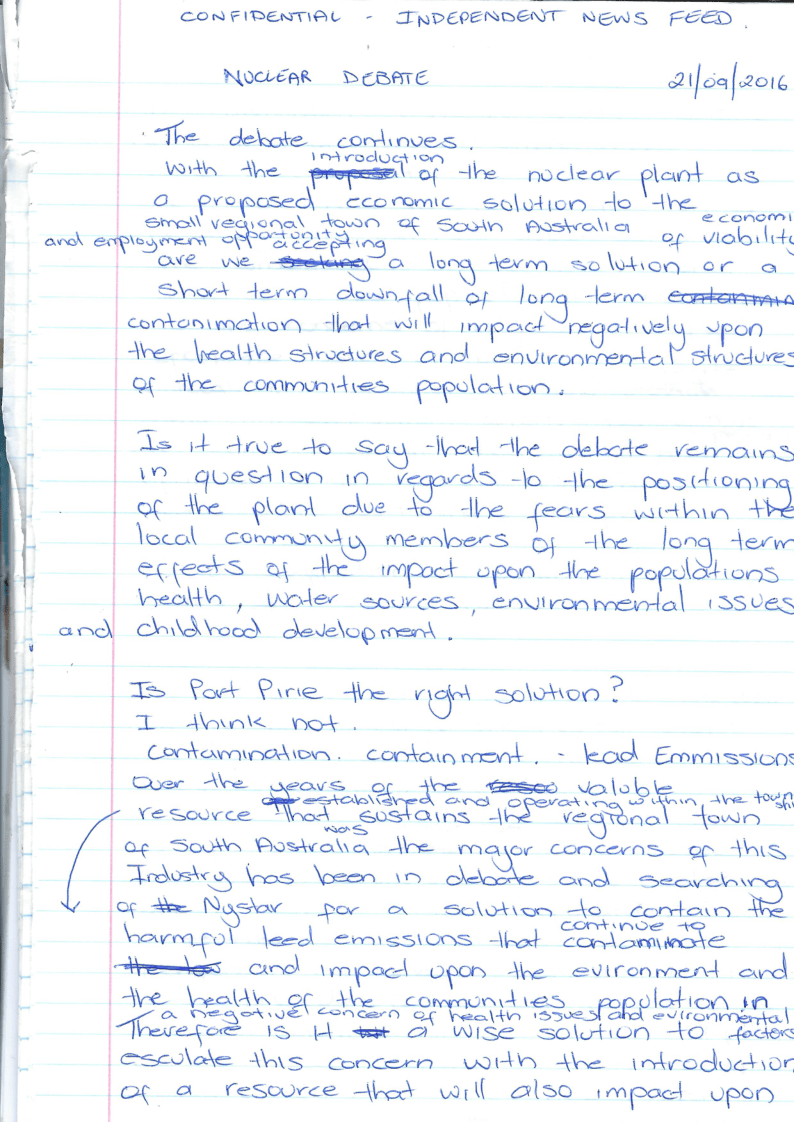 CONFIDENTIAL - INDEPENDENT NEWS FEED.
NUCLEAR DEBATE 21/09/2016
The debate continues.
introduction
With the proposal of the nuclear plant as
a proposed economic solution to the
small regional town of South Australia economi
and employment opportunity of viability
accepting
are we seeking a long term solution or a
short term downfall of long term contanmin
contanimation that will impact negatively upon
the health structures and environmental structures
of the communities population.
Is it true to say that the debate remains
in question in regards to the positioning
of the plant due to the fears within the
local community members of the long term
effects of the impact upon the populations
health, water sources, environmental issues
and childhood development.
Is Port Pirie the right solution?
I think not.
Contamination. containment. - lead Emmissions
Over the years of the valuble
established and operating within the town shi
resource that sustains the regional town
was
of South Australia the major concerns of this
Industry has been in debate and searching
of the Nystar for a solution to contain the
continue to
harmful leed emissions that contaminate
and impact upon the evironment and
the health of the communities population in
a negative concern of health issues and evironmental
Therefore is it a wise solution to factors
esculate this concern with the introduction
of a resource that will also impact upon